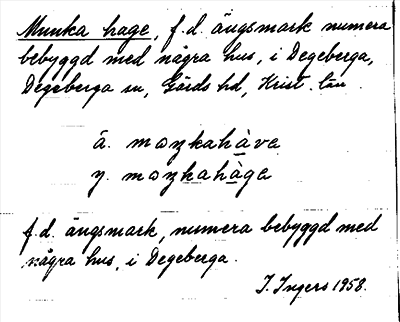 Munka hage, f.d. ängsmark numera
bebyggd med några hus, i Degeberga,
Degeberga sn, Gärds hd, Krist. län.
ä. moŋkahàve
y. moŋkahàge
f.d. ängsmark, numera bebyggd med
några hus, i Degeberga.
I. Ingers 1958.